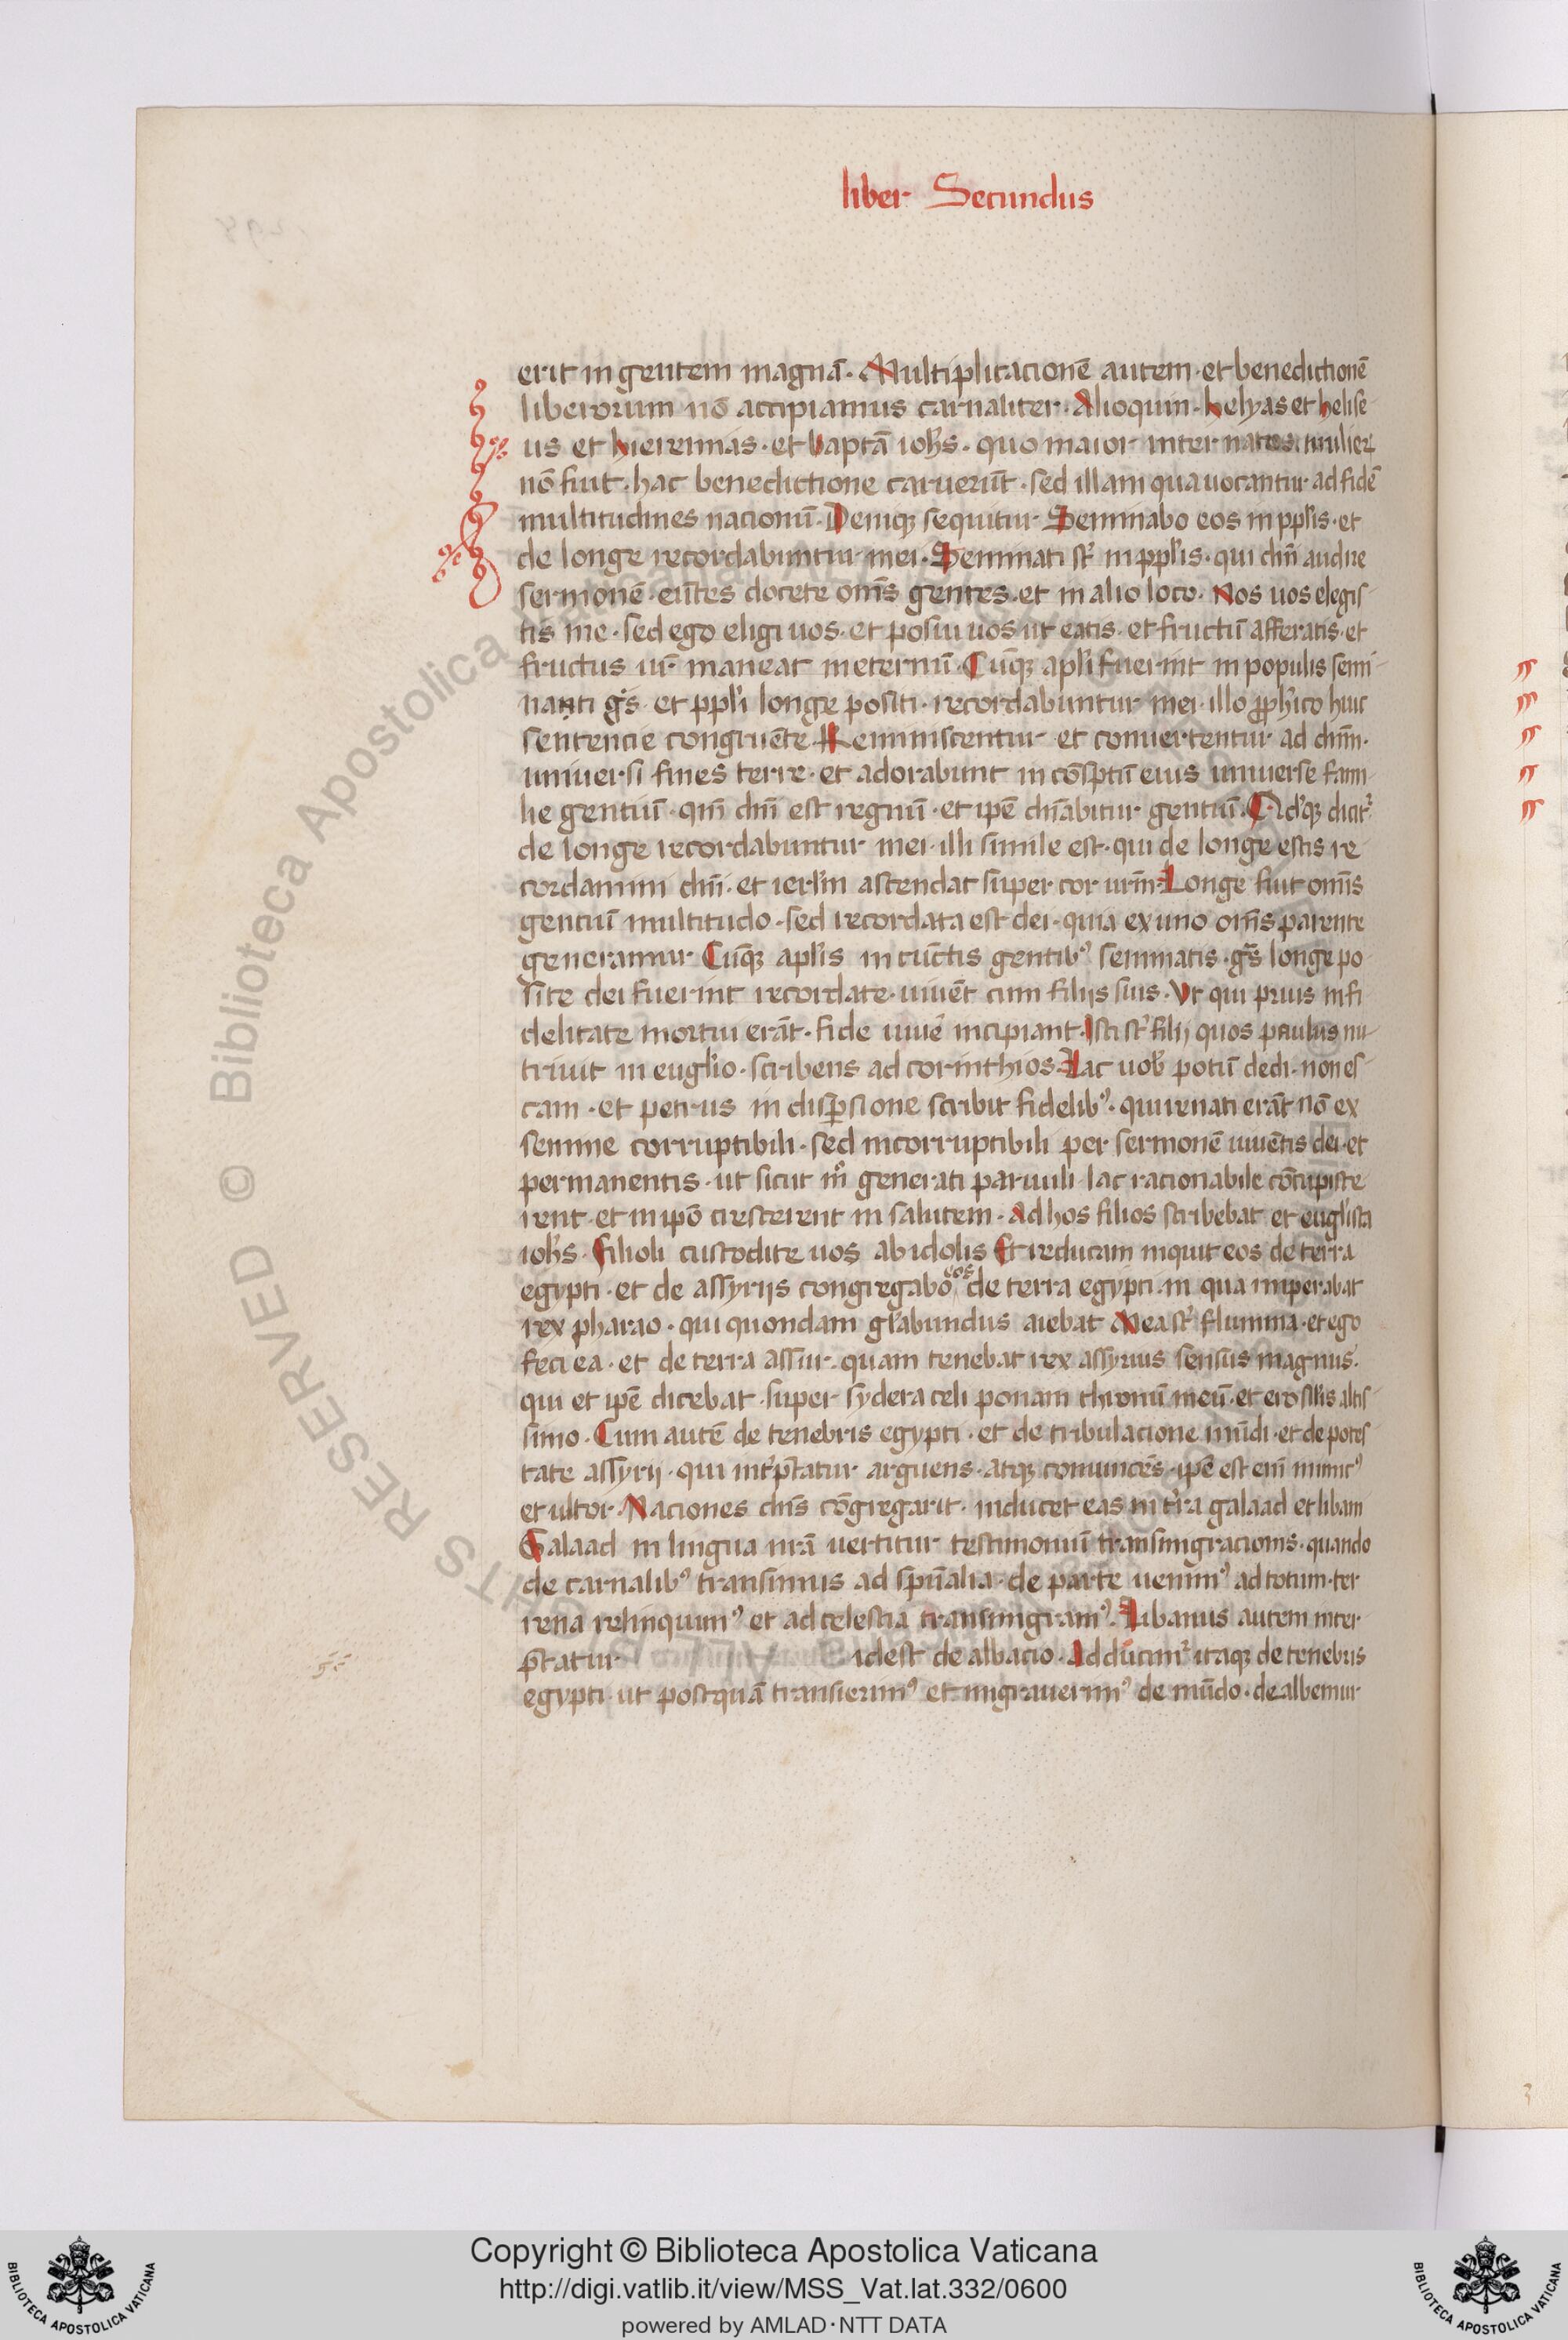 liber Secundus
erit in gentem magnā. Multiplicacionē autem. et benedictionē
liberorum nō accipiamus carnaliter. Alioquin. helyas et helise
us et hieremias. et baptā ioh̄s. quo maior inter natos mulieꝝ
nō fuit. hac benedictione caruerūt. sed illam qua uocantur ad fidē
multitudines nacionū. Deniqꝫ sequitur Seminabo eos in ppl̄is. et
de longe recordabuntur mei. Seminati st̄ in ppl̄is. qui dn̄i audire
sermonē. eūtes docete om̄s gentes. et in alio loco. Nos uos elegis
tis me. sed ego eligi uos. et posui uos ut eatis. et fructū afferatis. et
fructus ur̄ maneat in eternū. Cūqꝫ apl̄i fuerint in populis semi
nanti gͦs et ppl̄i longe positi. recordabuntur mei. illo ꝓph̄ico huic
sentencie congruēte. Reminiscentur et conuertentur ad dn̄m.
uniuersi fines terre. et adorabunt in cōsp̄tū eius uniuerse fami
lie gentiū. qm̄ dn̄i est regnū. et ipē dn̄abitur gentiū. Qd̓qꝫ dicit᷒
de longe recordabuntur mei. illi simile est. qui de longe estis re
cordamini dn̄i. et ierl̄m ascendat super cor urm̄. Longe fuit om̄is
gentiū multitudo. sed recordata est dei. quia ex uno om̄s parente
generamur. Cūqꝫ apl̄is in cūctis gentibꝰ seminatis. gn̄s longe po
site dei fuerint recordate. uiuēt cum filijs suis. Vt qui prius infi
delitate mortui erāt. fide uiuē incipiant. Isti st̄ filij quos paulus nu
triuit in euglio. scribens ad corinthios. Lac uob̄ potū dedi. non es
cam. et petrus in disp̱sione scribit fidelibꝰ. qui renati erāt nō ex
semine corruptibili. sed incorruptibili per sermonē uiuētis dei. et
permanentis. ut sicut mͦ generati paruuli. lac racionabile cōcupisce
rent. et in ipō crescerent in salutem. Ad hos filios scribebat et euglista
ioh̄s. Filioli custodite uos ab idolis. Et reducam inquit eos de terra
egypti. et de assyrijs congregabo eos de terra egypti. in qua imperabat
rex pharao. qui quondam gl̄abundus aiebat Mea st̄ flumina. et ego
feci ea. et de terra assur. quam tenebat rex assyrius sensus magnus.
qui et ipē dicebat. super sydera celi ponam thronū meū. et ero sil̄is altis
simo. Cum autē de tenebris egypti. et de tribulacione mūdi. et de potes
tate assyrij. qui int̓p̄tatur arguens. atqꝫ conuincēs. ipē est eni᷑ inimicꝰ
et ultor. Naciones dn̄s cōgregarit. inducet eas in tr̓ra galaad et libani
Galaad in lingua nrā uertitur testimoniū transmigracionis. quando
de carnalibꝰ transimus ad spūalia. de parte uenimꝰ ad totum. ter
rena relinquimꝰ et ad celestia transmigramꝰ. Libanus autem inter
p̄tatur idest de albacio. Adducim᷒ itaqꝫ de tenebris
egypti. ut postquā transierimꝰ et migrauerimꝰ de mūdo. dealbemur
Copyright © Biblioteca Apostolica Vaticana
http://digi.vatlib.it/view/MSS_Vat.lat.332/0600
powered by AMLAD · NTT DATA